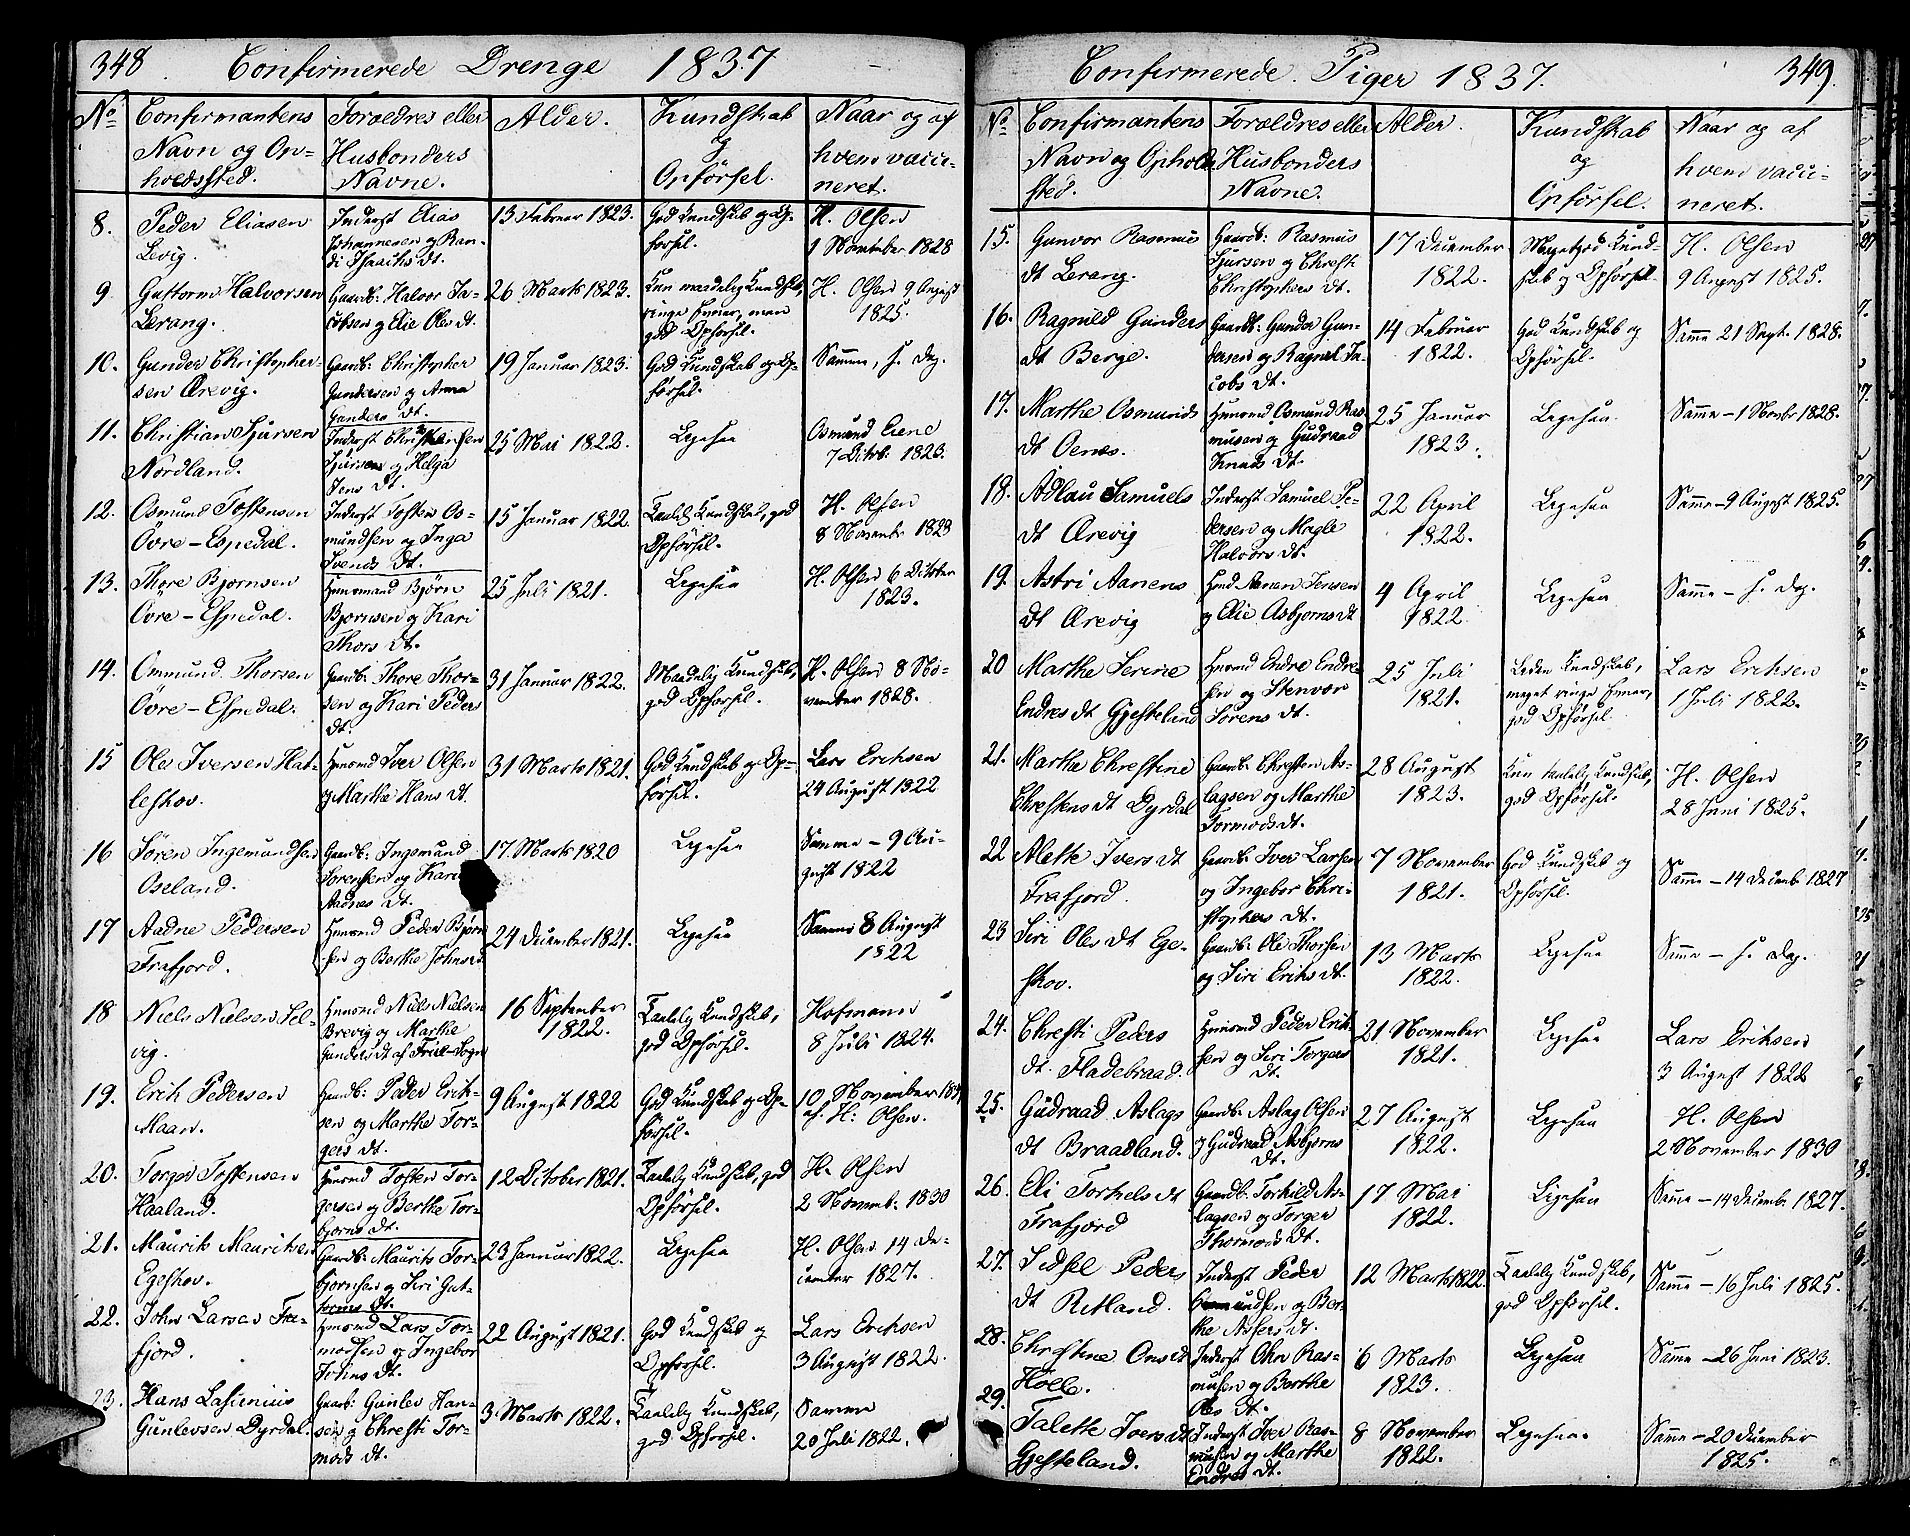 348 Confirmerede Drenge 1837
No Confirmantens Navn og Opholdssted. Forældres eller Husbonders Navne. Alder. Kundskab og Opförsel. Naar og af hvem vacineret.
8. Peder Eliasen Levig. Inderst Elias Johannesen og Randi Isaachs dt. 13 Februar 1823. God Kundskab og Opförsel. H. Olsen 1 November 1828
9 Guttorm Halvorsen Lerang. Gaardb: Halvor Jacobsen og Elie Oles dt. 26 Marts 1823. Kun maadelig Kundskab, ringe Evner, men god Opförsel. H. Olsen 9 August 1825.
10. Gunder Christophersen Ærevig. Gaardb: Christopher Gundersen og Anna Gunders dt. 19 Januar 1823. God Kundskab og Opförsel. Samme, s. Dag.
11. Christian Sjursen Nordland. Inderst Christen Sjursen og Helga Jens dt. 25 Mai 1822. Ligesaa Osmund Eiene 7 Octob. 1823.
12. Osmund Tostensen Övre-Espedal. Inderst Tosten Osmundsen og Inga Svends dt. 15 Januar 1822. Taalelig Kundskab, god Opförsel. H. Olsen 8 Novembr 1828
13. Thore Bjornsen Övre-Espedal. Huusmand Björn Bjornsen og Kari Thors dt. 25 Juli 1821. Ligesaa H. Olsen 6 October 1823.
14. Ommund Thorsen Övre-Espedal. Gaardb: Thore Thorsen og Kari Peders dt. 31 Januar 1822. Maadelig Kundskab, god Opförsel. H. Olsen 8 November 1828.
15 Ole Iversen Hatleskov. Huusmd Iver Olsen og Marthe Hans dt. 31 Marts 1821. God Kundskab og Opförsel. Lars Erichsen 24 August 1822
16 Sören Ingemundsen Oseland. Gaardb: Ingemund Sorensen og Kari Aadnes dt. 17. Marts 1820 Ligesaa Samme - 9 August 1822
17 Aadne Pedersen Frafjord. Huusmd Peder Bjørnsen og Berthe Johns d. 24 December 1821. Ligesaa Samme 8 August 1822
18 Niels Nielsen Selvig. Huusmd Niels Nielsen Brevig og Marthe Gunders dt af Friil-Sogn 16 September 1822. Taalelig Kundskab, god Opförsel. Hofmann 8 Juli 1824.
19. Erik Pedersen Maan. Gaardb: Peder Eriksen og Marthe Torgers dt. 9 August 1822 God Kundskab og Opförsel. 10 November af H. Olsen.
20. Torger Tostensen Haaland. Huusmd Tosten Torgersen og Berthe Torbjorns dt. 12 October 1821. Taalelig Kundskab, god Opförsel. H. Olsen 2 Novembr. 1830
21. Maurits Mauritsen Egeskov. Gaardb: Maurits Torbjornsen og Siri Guttorms dt. 23 Januar 1822. Ligesaa H. Olsen 14 December 1827.
22. John Larsen Frafjord. Huusmd Lars Tormodsen og Ingebor Johns dt. 22 August 1821. God Kundskab og Opförsel. Lars Erichsen 3 August 1822.
23. Hans Lasinius Gunlevsen Dyrdal. Gaardb: Gunlev Hansen og Chresti Tormods dt. 3. Marts 1822. Taalelig Kundskab, god Opförsel. Samme 20 Juli 1822.
Confirmerede Piger 1837. 349.
No Confirmantens Navn og Opholdsted. Forældres eller Husbonders Navne. Alder. Kundskab og Opförsel. Naar og af hvem vacineret.
15. Gunvor Rasmus dt Lerang. Gaardb: Rasmus Sjursen og Chresti Christophers dt. 17 December 1822. Megetgod Kundskab og Opförsel. H. Olsen 9 August 1825.
16. Ragnild Gunders dt Berge. Gaardb: Gunder Gundersen og Ragnil Jacobs dt. 14 Februar 1822. God Kundskab og Opförsel. Samme 21 Sept. 1828.
17. Marthe Osmunds dt Oenæs. Huusmd Osmund Rasmusen og Gudraad Knuds dt. 25 Januar 1823. Ligesaa Samme - 1 Novbr 1828.
18. Adlau Samuels dt Ærevig Inderst Samuel Pedersen og Magle Halvors dt. 22 April 1822. Ligesaa Samme - 9 August 1825.
19. Astri Aanens dt Ærevig Huusmd Aanen Jensen og Elie Asbjorns dt 4 April 1822. Ligesaa Samme - s. Dag.
20 Marthe Serine Endres dt Gjesteland Huusmd Endre Endresen og Stenvor Sörens dt. 25 Juli 1821. Liden Kundskab, meget ringe Evner, god Opförsel. Lars Erichsen 1 Juli 1822.
21. Marthe Chrestine Chrestens dt Dyrdal Gaardb: Chresten Aslagsen og Marthe Tormods dt. 28 August 1823. Kun taalelig Kundskab, god Opförsel. H. Olsen 28 Juni 1825.
22 Alette Ivers dt Frafjord. Gaardb: Iver Larsen og Ingebor Christophers dt. 7 November 1821. God Kundskab og Opförsel. Samme - 14 Decembr 1827
23 Siri Oles dt Egeskov. Gaardb: Ole Thorsen og Siri Eriks dt. 13 Marts 1822. Ligesaa Samme - s. Dag.
24. Chresti Peders dt. Fladebraad. Huusmd Peder Eriksen og Siri Torgers dt. 21 November 1821. Ligesaa Lars Eriksen 3 August 1822
25. Gudraad Aslags dt Braadland. Gaardb: Aslag Olsen og Gudraad Asbjorns dt. 27 August 1822. Ligesaa H. Olsen 2 November 1830
26. Eli Torkels dt Frafjord Gaardb: Torkild Aslagsen og Torger Thormods dt. 17 Mai 1822. Ligesaa Samme - 14 Decembr 1827.
27. Sidsel Peders dt Retland. Inderst Peder Omundsen og Berthe Assers dt. 12 Marts 1822. Taalelig Kundskab, god Opförsel. Samme - 16 Juli 1825.
28. Chrestine Ons dt Holle. Inderst One Rasmusen og Berthe Oles dt. 6 Marts 1823. Ligesaa Samme - 26 Juni 1823.
29. Talette Ivers dt Gjesteland. Inderst Iver Rasmusen og Marthe Endres dt. 8 November 1822. Ligesaa. Samme - 20 December 1825.